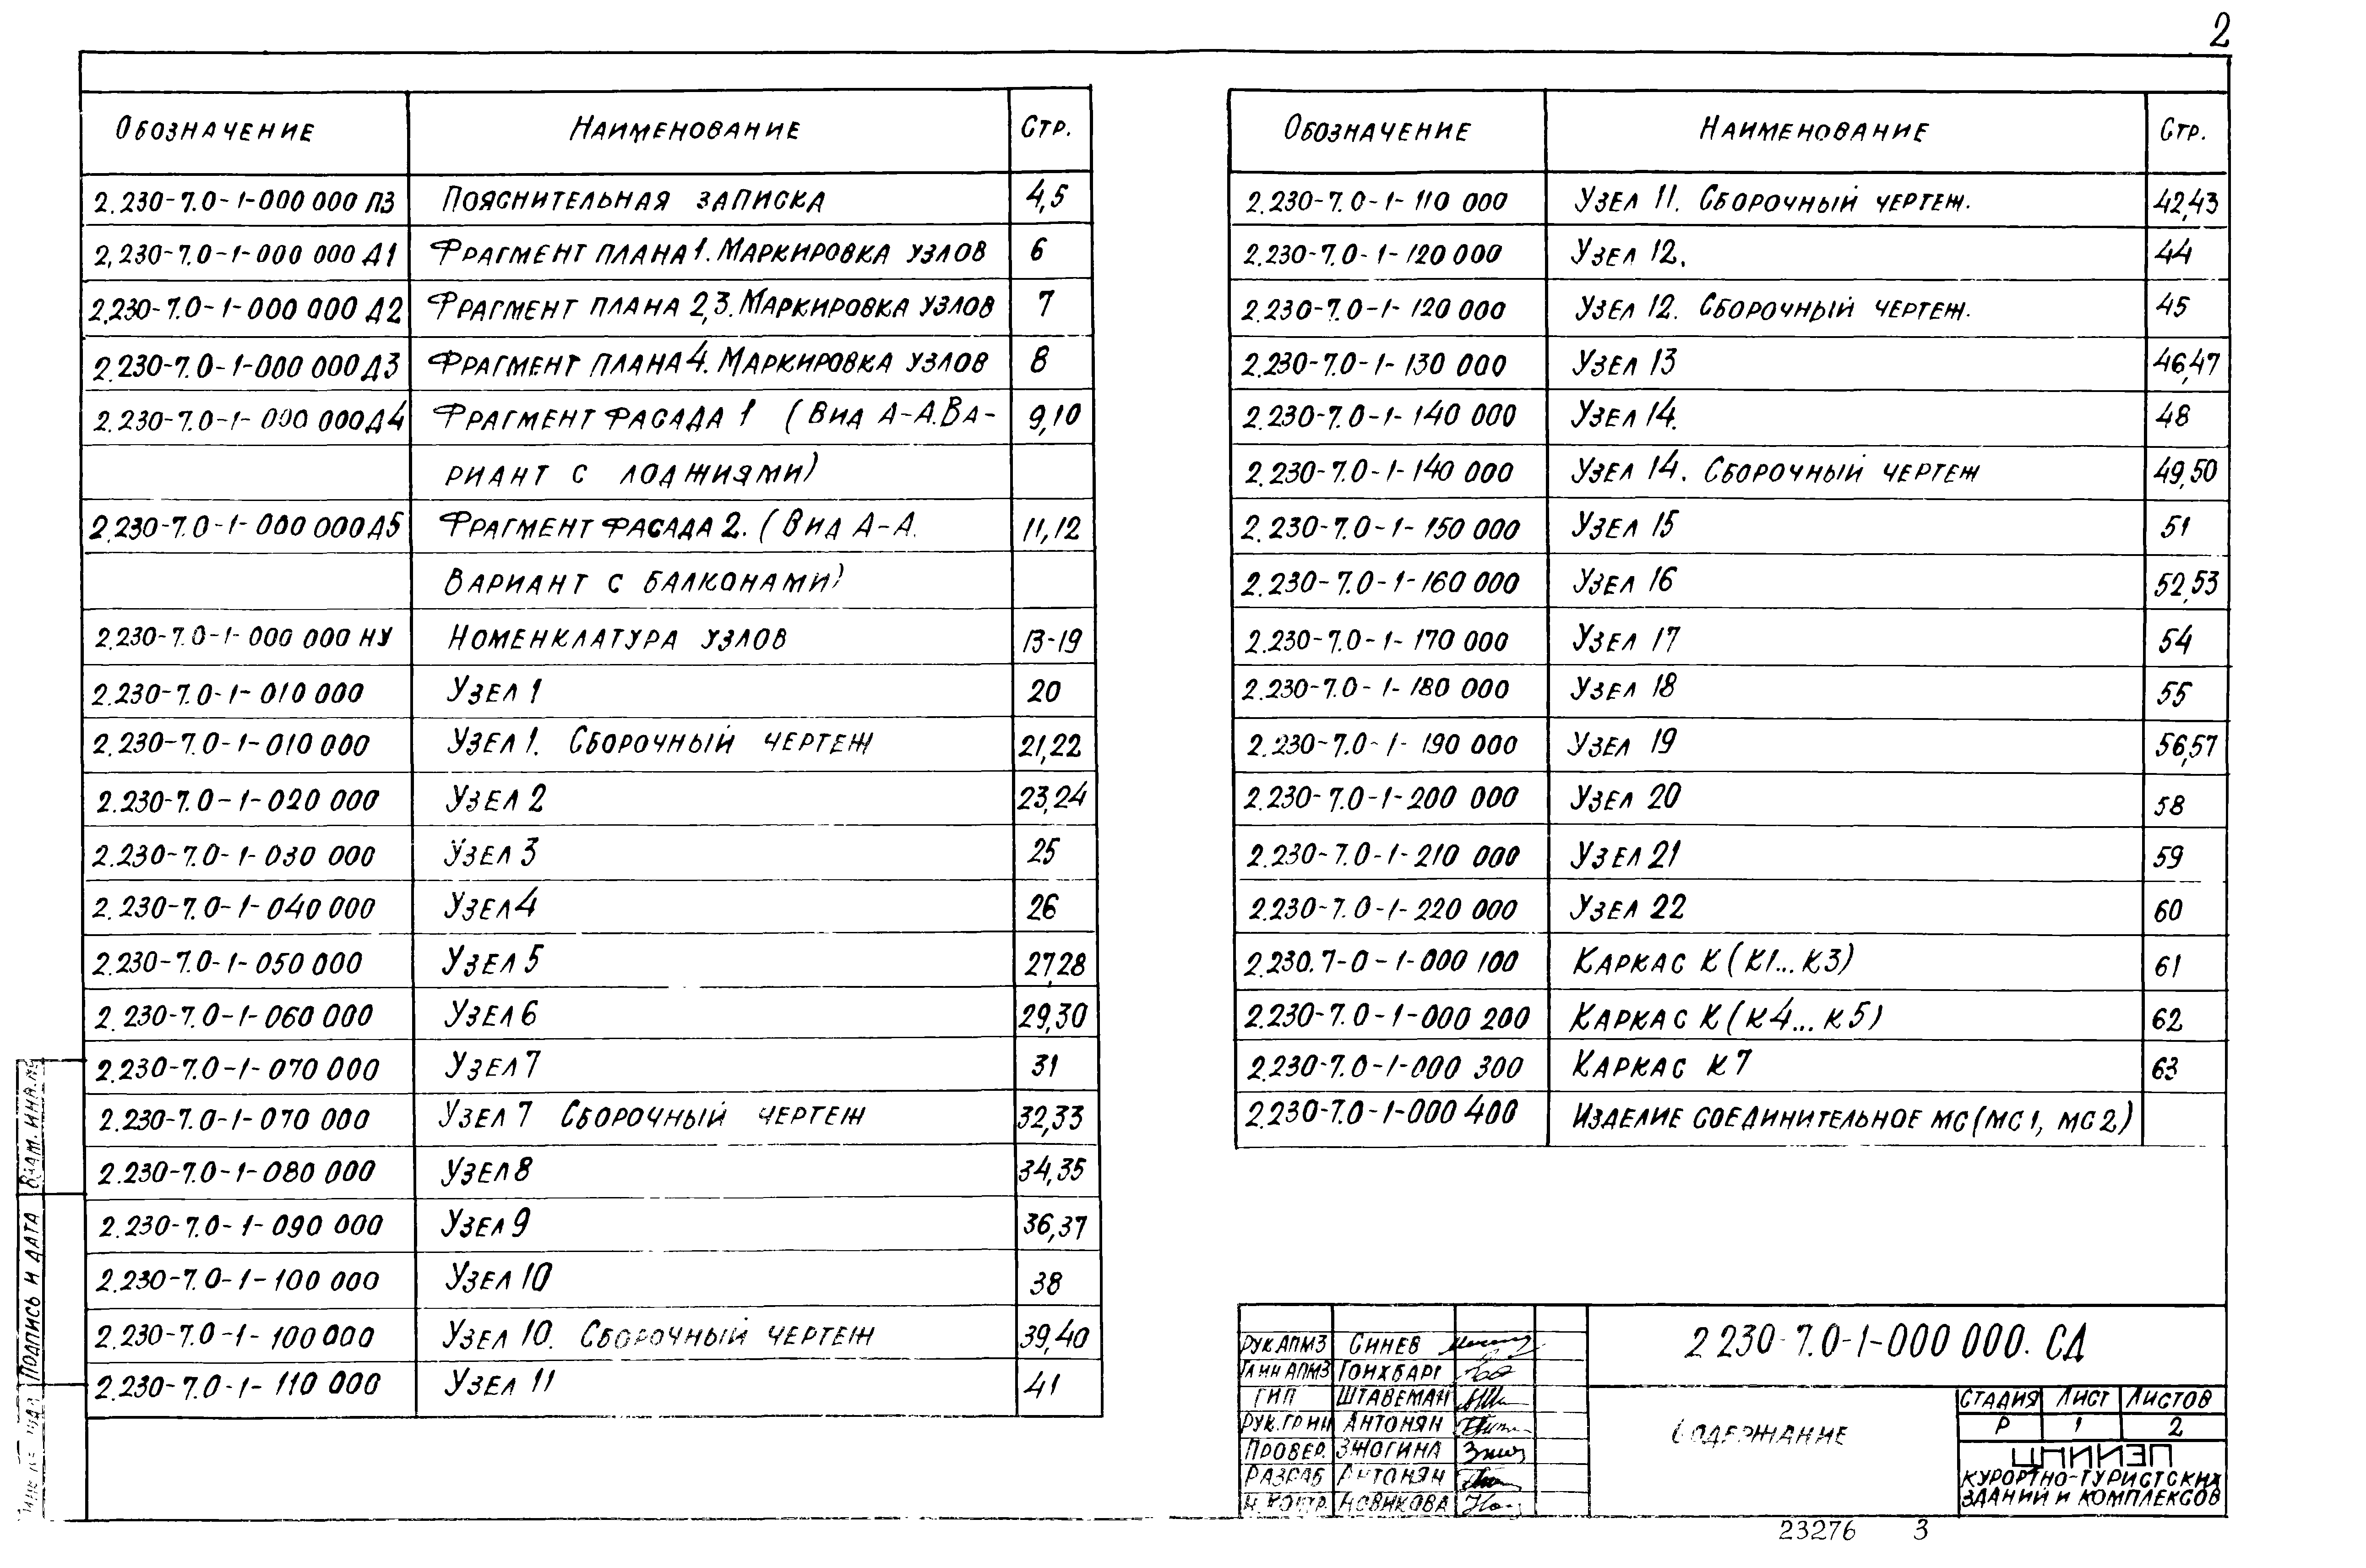 2
Обозначение Наименование Стр.
2.230-7.0-1-000 000 ПЗ Пояснительная записка 4,5
2.230-7.0-1-000 000 Д1 Фрагмент плана 1. Маркировка узлов 6
2.230-7.0-1-000 000 Д2 Фрагмент плана 2,3. Маркировка узлов 7
2.230-7.0-1-000 000 Д3 Фрагмент плана 4. Маркировка узлов 8
2.230-7.0-1-000 000 Д4 Фрагмент фасада 1 (Вид А-А. Ва- 9,10
риант с лоджиями)
2.230-7.0-1-000 000 Д5 Фрагмент фасада 2. (Вид А-А. 11,12
Вариант с балконами)
2.230-7.0-1-000 000 НУ Номенклатура узлов 13-19
2.230-7.0-1-010 000 Узел 1 20
2.230-7.0-1-010 000 Узел 1. Сборочный чертеж 21,22
2.230-7.0-1-020 000 Узел 2 23,24
2.230-7.0-1-030 000 Узел 3 25
2.230-7.0-1-040 000 Узел 4 26
2.230-7.0-1-050 000 Узел 5 27,28
2.230-7.0-1-060 000 Узел 6 29,30
2.230-7.0-1-070 000 Узел 7 31
2.230-7.0-1-070 000 Узел 7 Сборочный чертеж 32,33
2.230-7.0-1-080 000 Узел 8 34,35
2.230-7.0-1-090 000 Узел 9 36,37
2.230-7.0-1-100 000 Узел 10 38
2.230-7.0-1-100 000 Узел 10. Сборочный чертеж 39,40
2.230-7.0-1-110 000 Узел 11 41
Обозначение Наименование Стр.
2.230-7.0-1-110 000 Узел 11. Сборочный чертеж. 42,43
2.230-7.0-1-120 000 Узел 12. 44
2.230-7.0-1-120 000 Узел 12. Сборочный чертеж. 45
2.230-7.0-1-130 000 Узел 13 46,47
2.230-7.0-1-140 000 Узел 14. 48
2.230-7.0-1-140 000 Узел 14. Сборочный чертеж 49,50
2.230-7.0-1-150 000 Узел 15 51
2.230-7.0-1-160 000 Узел 16 52,53
2.230-7.0-1-170 000 Узел 17 54
2.230-7.0-1-180 000 Узел 18 55
2.230-7.0-1-190 000 Узел 19 56,57
2.230-7.0-1-200 000 Узел 20 58
2.230-7.0-1-210 000 Узел 21 59
2.230-7.0-1-220 000 Узел 22 60
2.230.7-0-1-000 100 Каркас К (К1...К3) 61
2.230-7.0-1-000 200 Каркас К (К4...К5) 62
2.230-7.0-1-000 300 Каркас К7 63
2.230-7.0-1-000 400 Изделие соединительное МС (МС1, МС2)
Взам. инв.№
Подпись и дата
Рук АПМ3 Синев
Гл ин АПМ3 Гойхбарг
ГИП Штавеман
Рук.гр ин Антонян
Провер. Зжогина
Разраб Антонян
Н. контр. Новикова
2 230-7.0-1-000 000. СД
Содержание
Стадия Лист Листов
Р 1 2
ЦНИИЭП
курортно-туристских
зданий и комплексов
23276 3